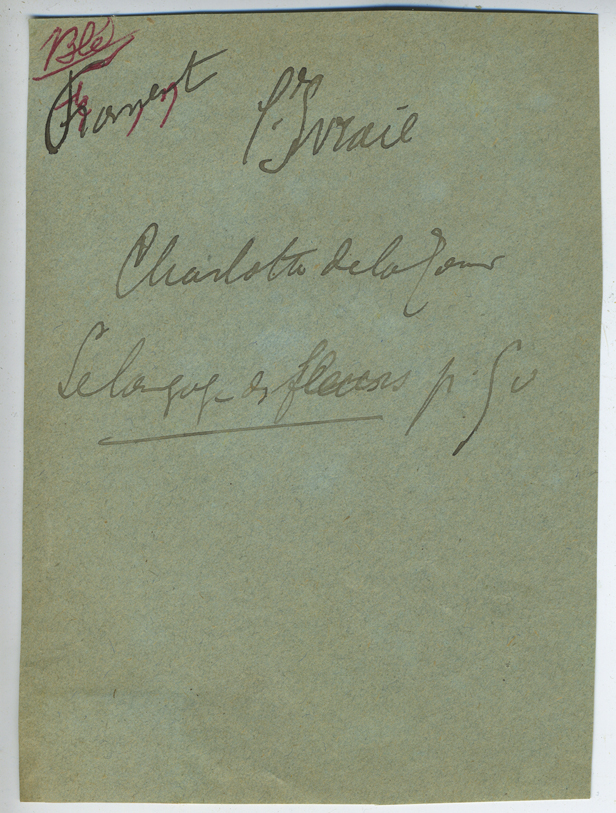 Blé
Froment
l'Ivraie
Charlotte de la Tour
Le langage des fleurs p.